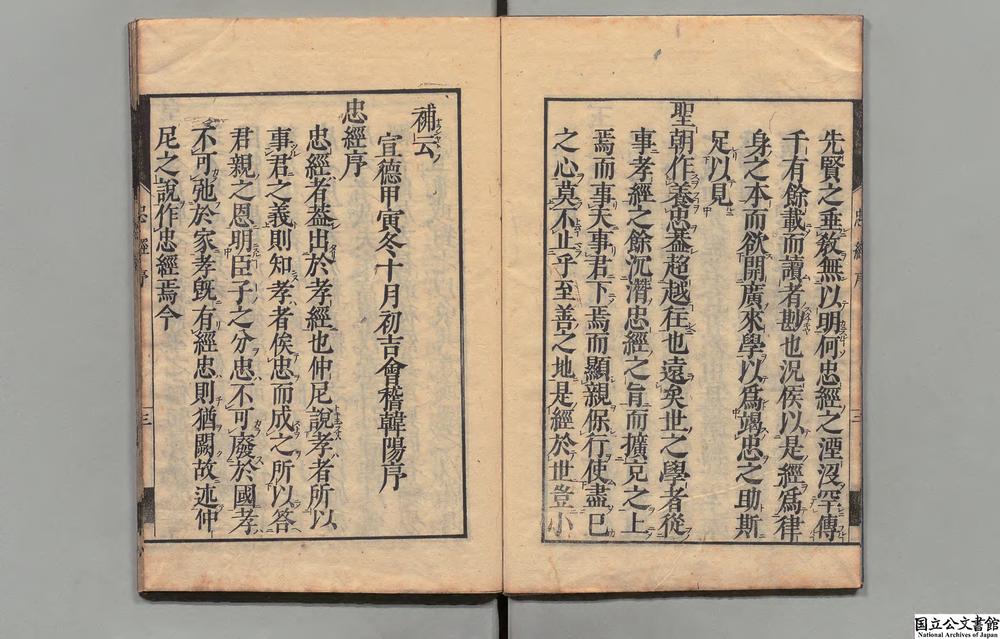 先賢之垂敎無以明何忠經之湮沒罕傳
千有餘載而讀者尠也況侯以是經爲律
身之本而欲開廣來學以爲竭忠之助斯
足以見
聖朝作養忠藎超越往古遠矣世之學者從
事孝經之餘沉潛忠經之旨而擴充之上
焉而事天事君下焉而顯親保行使盡巳
之心莫不止乎至善之地是經於世豈小
補云
宣德甲寅冬十月初吉會稽韓陽序
忠經序
忠經者葢出於孝經也仲尼說孝者所以
事君之義則知孝者俟忠而成之所以答
君親之恩明臣子之分忠不可廢於國孝
不可弛於家孝旣有經忠則猶闕故述仲
尼之說作忠經焉今
忠經序
三
忠經序
三
国立公文書館
National Archives of Japan